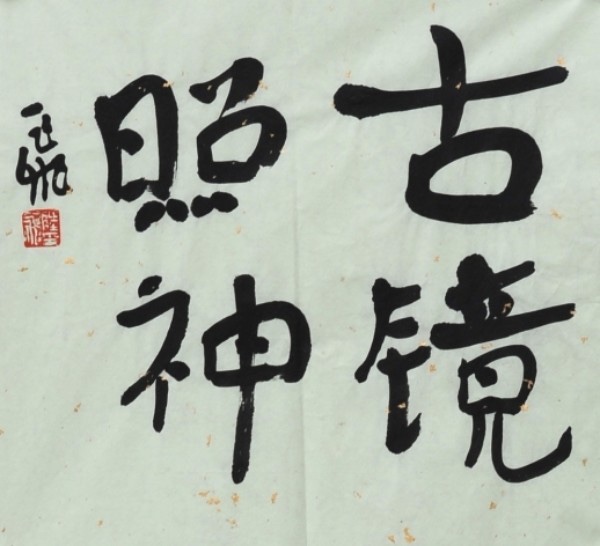 古镜
照神